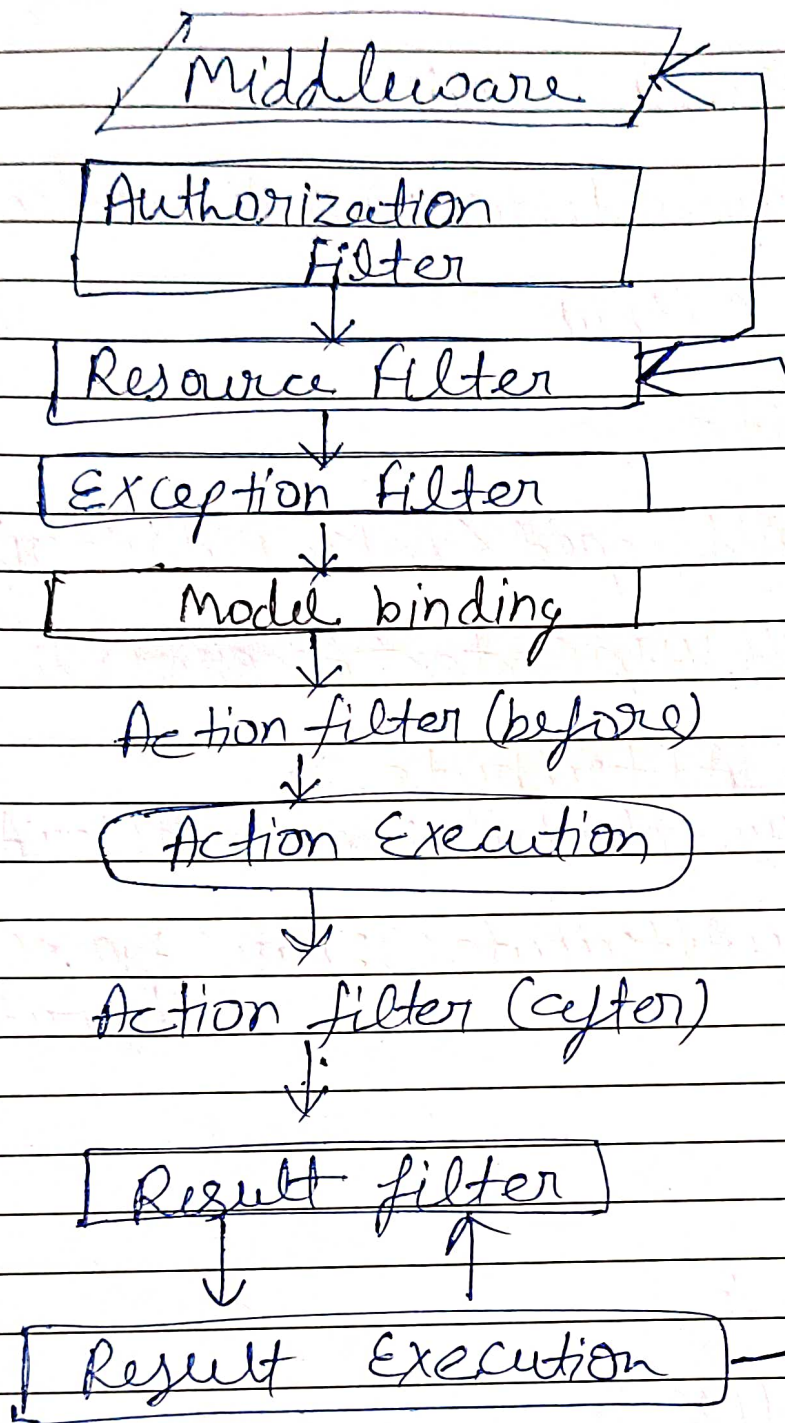 Middleware
Authorization
Filter
Resource filter
Exception filter
Model binding
Action filter (before)
Action Execution
Action filter (after)
Result filter
Result Execution